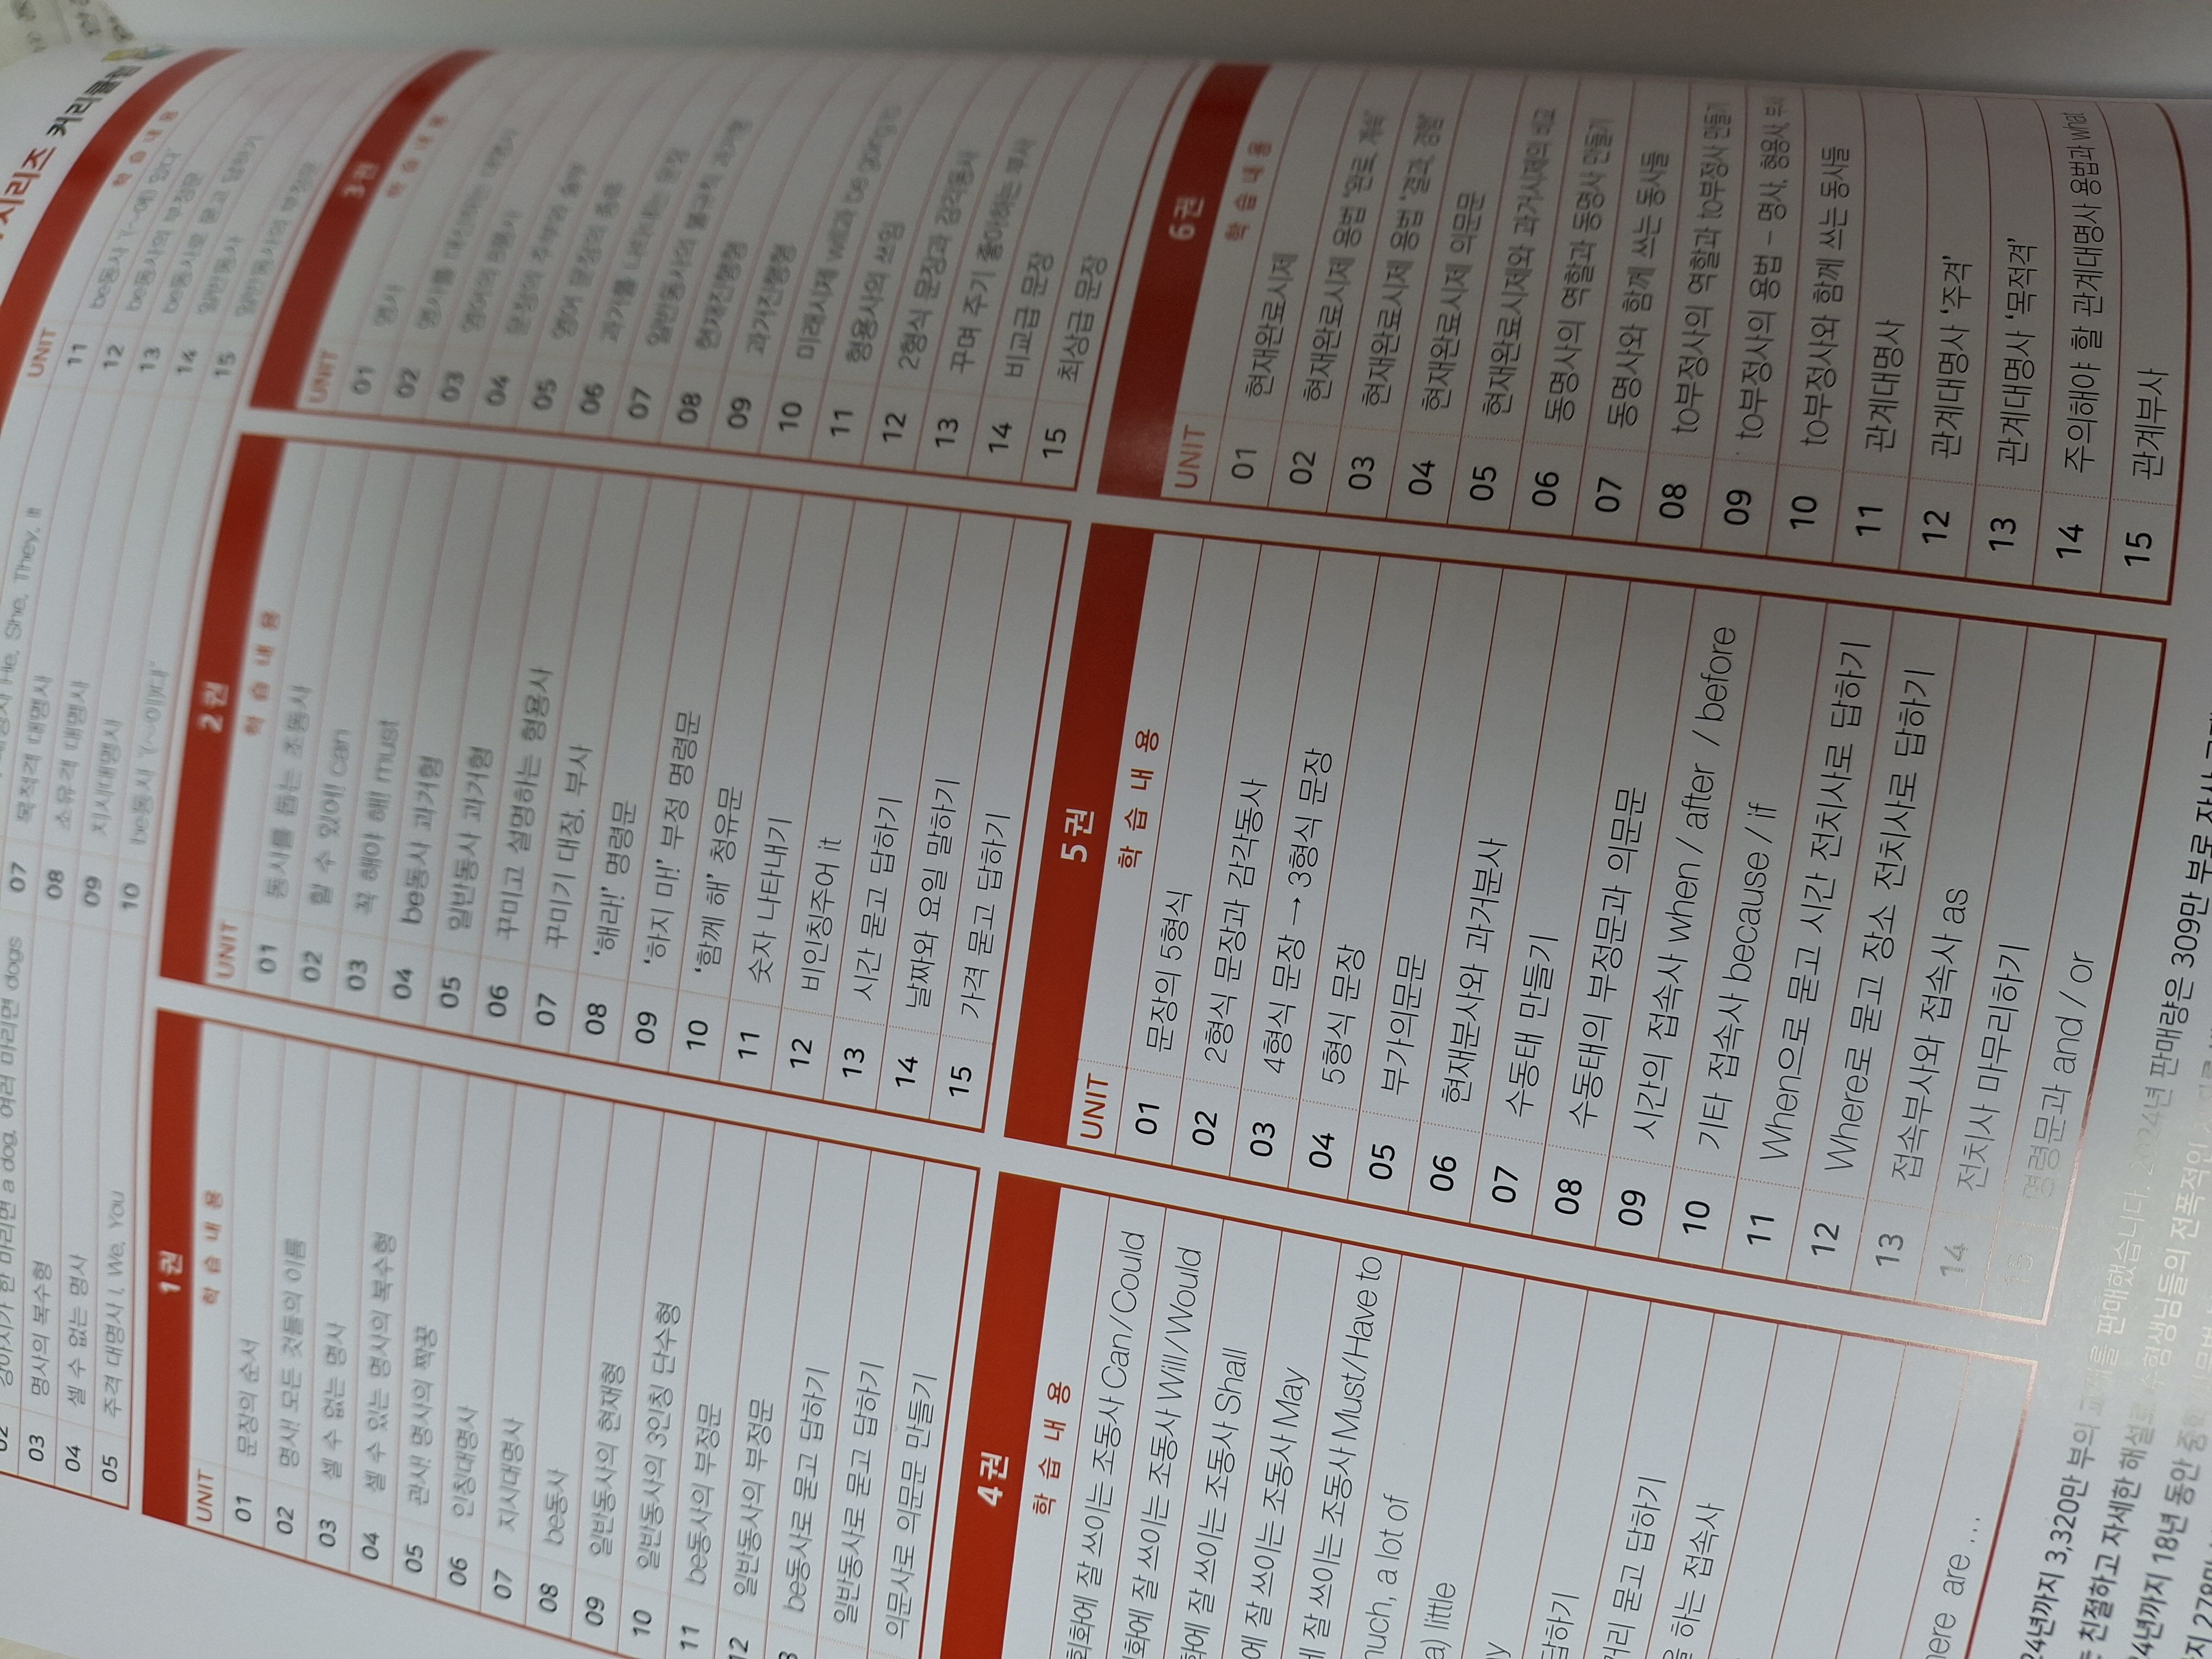 시리즈 커리큘럼
02 강아지가 한 마리면 a dog, 여러 마리면 dogs
03 명사의 복수형
04 셀 수 없는 명사
05 주격 대명사 I, We, You
He, She, They, It
07 목적격 대명사
08 소유격 대명사
09 지시대명사
10 be동사 '(~이)다'
UNIT 학습내용
11 be동사 '(~에) 있다'
12 be동사의 부정문
13 be동사로 묻고 답하기
14 일반동사
15 일반동사의 부정문
1권
UNIT 학습내용
01 문장의 순서
02 명사! 모든 것들의 이름
03 셀 수 없는 명사
04 셀 수 있는 명사의 복수형
05 관사! 명사의 짝꿍
06 인칭대명사
07 지시대명사
08 be동사
09 일반동사의 현재형
10 일반동사의 3인칭 단수형
11 be동사의 부정문
12 일반동사의 부정문
be동사로 묻고 답하기
일반동사로 묻고 답하기
의문사로 의문문 만들기
2권
UNIT 학습내용
01 동사를 돕는 조동사
02 할 수 있어! can
03 꼭 해야 해! must
04 be동사 과거형
05 일반동사 과거형
06 꾸미고 설명하는 형용사
07 꾸미기 대장, 부사
08 '해라!' 명령문
09 '하지 마!' 부정 명령문
10 '함께 해' 청유문
11 숫자 나타내기
12 비인칭주어 it
13 시간 묻고 답하기
14 날짜와 요일 말하기
15 가격 묻고 답하기
3권
UNIT 학습내용
01 명사
02 명사를 대신하는 대명사
03 영어의 be동사
04 문장의 주부와 술부
05 영어 문장의 종류
06 과거를 나타내는 문장
07 일반동사의 불규칙 과거형
08 현재진행형
09 과거진행형
10 미래시제 will과 be going to
11 형용사의 쓰임
12 2형식 문장과 감각동사
13 꾸며 주기 좋아하는 부사
14 비교급 문장
15 최상급 문장
4권
학습내용
회화에 잘 쓰이는 조동사 Can/Could
회화에 잘 쓰이는 조동사 Will/Would
잘 쓰이는 조동사 Shall
에 잘 쓰이는 조동사 May
잘 쓰이는 조동사 Must/Have to
much, a lot of
a) little
답하기
거리 묻고 답하기
을 하는 접속사
here are …
5권
UNIT 학습내용
01 문장의 5형식
02 2형식 문장과 감각동사
03 4형식 문장 → 3형식 문장
04 5형식 문장
05 부가의문문
06 현재분사와 과거분사
07 수동태 만들기
08 수동태의 부정문과 의문문
09 시간의 접속사 when / after / before
10 기타 접속사 because / if
11 When으로 묻고 시간 전치사로 답하기
12 Where로 묻고 장소 전치사로 답하기
13 접속부사와 접속사 as
14 전치사 마무리하기
15 명령문과 and / or
6권
UNIT 학습내용
01 현재완료시제
02 현재완료시제 용법 '완료, 계속'
03 현재완료시제 용법 '결과, 경험'
04 현재완료시제 의문문
05 현재완료시제와 과거시제의 비교
06 동명사의 역할과 동명사 만들기
07 동명사와 함께 쓰는 동사들
08 to부정사의 역할과 to부정사 만들기
09 to부정사의 용법 – 명사, 형용사, 부사
10 to부정사와 함께 쓰는 동사들
11 관계대명사
12 관계대명사 '주격'
13 관계대명사 '목적격'
14 주의해야 할 관계대명사 용법과 what
15 관계부사
24년까지 3,320만 부의 교재를 판매했습니다. 2024년 판매량은 309만 부로
친절하고 자세한 해설로 수험생님들의 전폭적인
24년까지 18년 동안